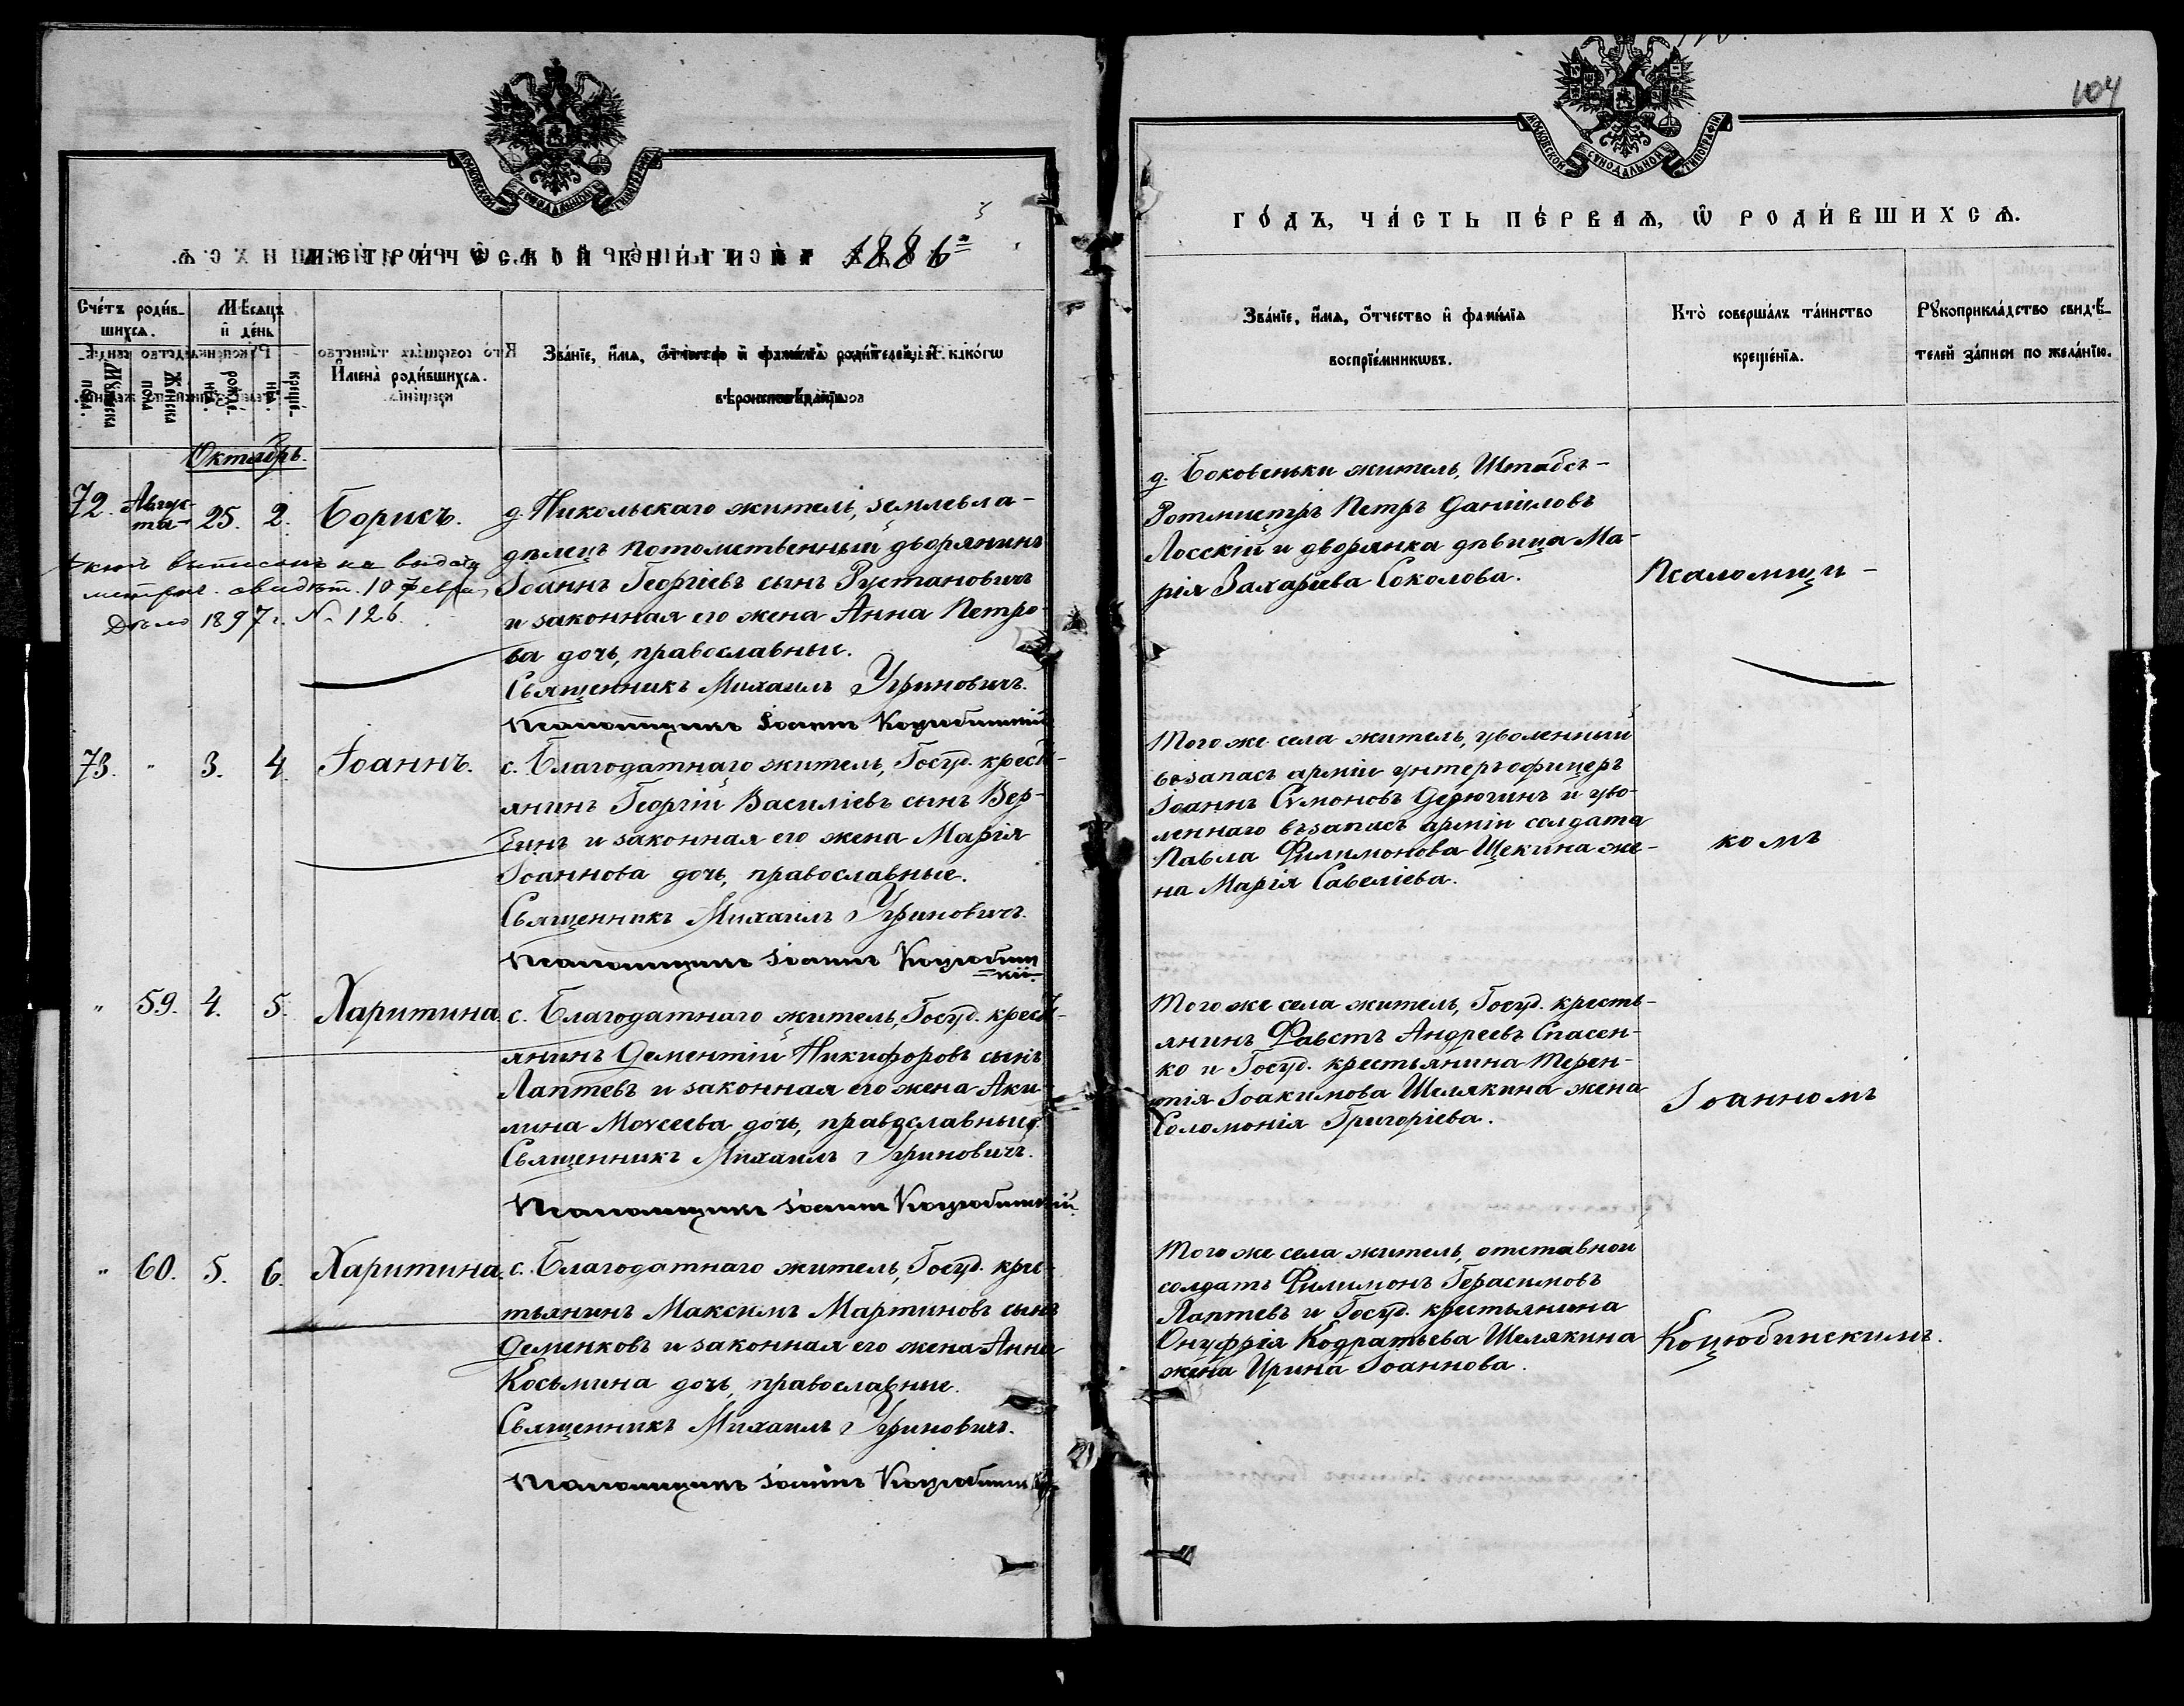 104
МОСКОВСКОЙ СѴНОДАЛЬНОЙ ТИПОГРАФІИ
1886
Счéтъ роди́в-
шихсѧ.
Мѣ́сѧцъ
и҆ де́нь
Мꙋжеска
пола.
Женска
пола
рожде́-
нїѧ.
креще́-
нїѧ.
И҆мена̀ роди́вшихсѧ.
Зва́нїе, и҆́мѧ, ѻ҆́тчество и҆ фамилїѧ роди́телей, и҆ како́гѡ
вѣроисповѣ́данїѧ.
Октябрь.
72. Август- 25. 2. Борисъ.
та-
д. Никольскаго житель, землевла-
дѣлецъ потомственный дворянинъ
Іоаннъ Георгіевъ сынъ Рустановичъ
и законная его жена Анна Петро-
ва дочь, православные.
Священникъ Михаилъ Угриновичъ.
Псаломщикъ Іоаннъ Коцюбинскій
выписанъ на выдачу
метрич. свидѣт. 10 февр.
Дѣло 1897 г. № 126.
73. " 3. 4. Іоаннъ.
с. Благодатнаго житель, Госуд. кресть-
янинъ Георгій Василіевъ сынъ Вер-
зинъ и законная его жена Марія
Іоаннова дочь, православные.
Священникъ Михаилъ Угриновичъ.
Псаломщикъ Іоаннъ Коцюбин
скій
" 59. 4. 5. Харитина.
с. Благодатнаго житель, Госуд. кресть-
янинъ Дементій Никифоровъ сынъ
Лаптевъ и законная его жена Аки-
лина Моѵсеева дочь, православные.
Священникъ Михаилъ Угриновичъ.
Псаломщикъ Іоаннъ Коцюбинскій.
" 60. 5. 6. Харитина.
с. Благодатнаго житель, Госуд. крес-
тьянинъ Максимъ Мартиновъ сынъ
Деменковъ и законная его жена Анна
Косьмина дочь, православные.
Священникъ Михаилъ Угриновичъ.
Псаломщикъ Іоаннъ Коцюбинскій
МОСКОВСКОЙ СѴНОДАЛЬНОЙ ТИПОГРАФІИ
ГО́ДЪ, ЧА́СТЬ ПЕ́РВАѦ, Ѽ РОДИ́ВШИХСѦ.
Зва́нїе, и҆́мѧ, ѻ҆́тчество и҆ фами́лїѧ
воспрїе́мникѡвъ.
Кто̀ соверша́лъ та́инство
креще́нїѧ.
Рꙋкоприкла́дство свидѣ́-
телей за́писи по жела́нїю.
д. Боковеньки житель, Штабсъ-
Ротмистръ Петръ Даніиловъ
Лосскій и дворянка дѣвица Ма-
рія Захаріева Соколова.
Того же села житель, уволенный
въ запасъ арміи унтеръ офицеръ
Іоаннъ Сѵмоновъ Дерюгинъ и уво-
леннаго въ запасъ арміи солдата
Павла Филимонова Щекина же-
на Марія Савеліева.
Того же села житель, Госуд. кресть-
янинъ Фавстъ Андреевъ Спасен-
ко и Госуд. крестьянина Терен-
тія Іоакимова Шелякина жена
Соломонія Григоріева.
Того же села житель, отставной
солдатъ Филимонъ Герасимовъ
Лаптевъ и Госуд. крестьянина
Онуфрія Кодратьева Шелякина
жена Ирина Іоаннова.
Псаломщи-
комъ
Іоанномъ
Коцюбинскимъ.